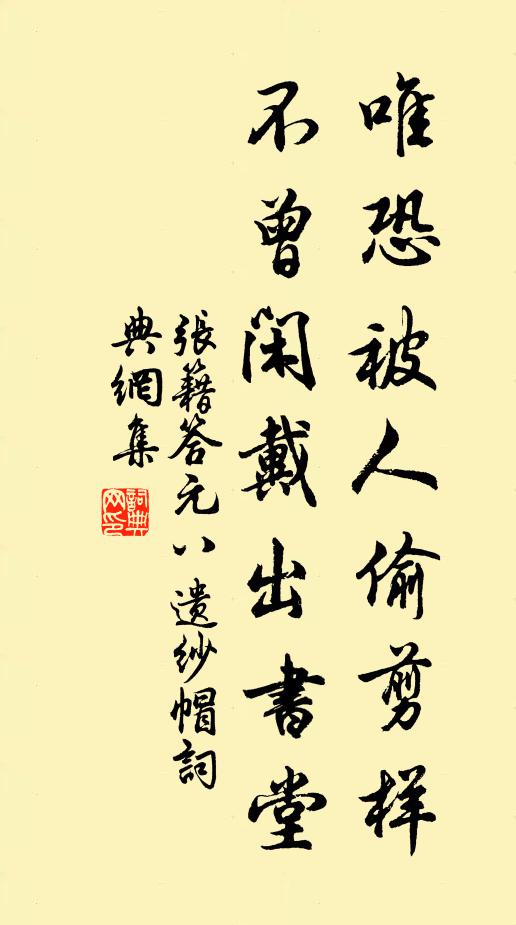 唯恐被人偷剪样
不曾闲戴出書堂
張籍答元八遺紗帽詞
典網集
詞典网印